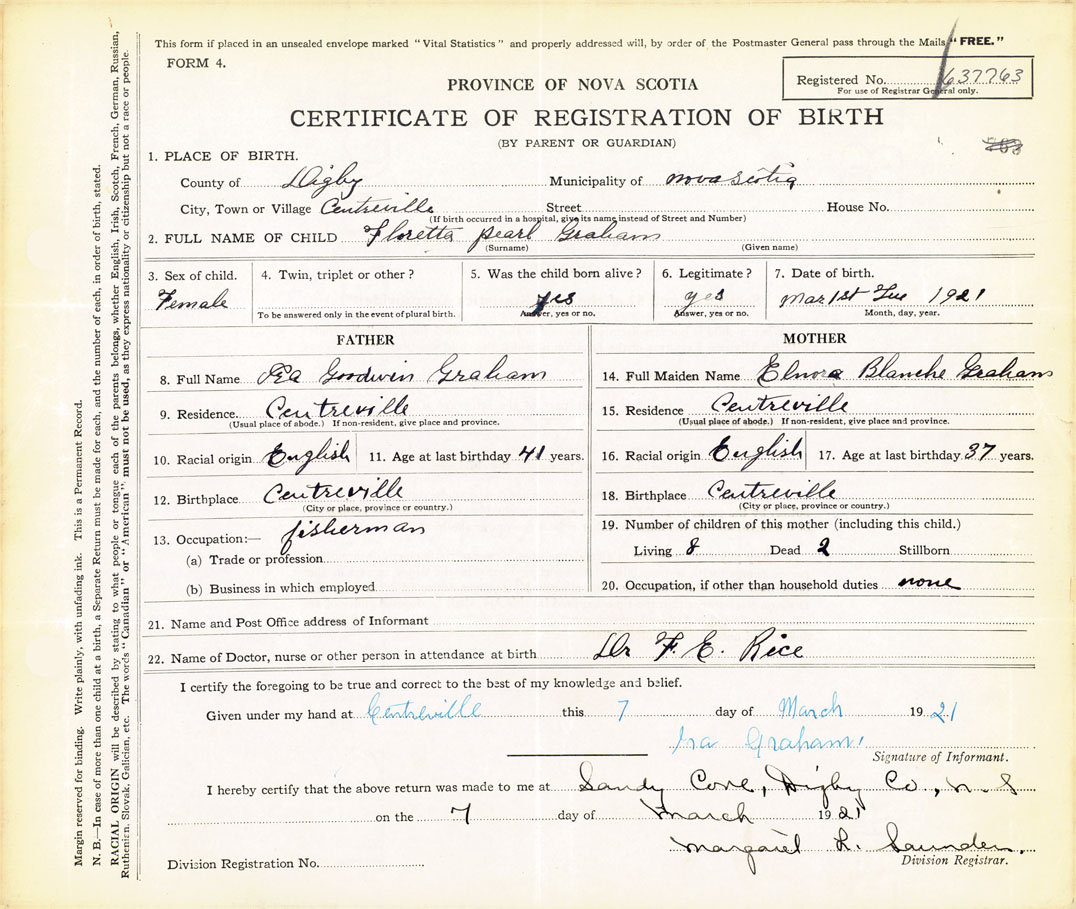 This form if placed in an unsealed envelope marked "Vital Statistics" and properly addressed will, by order of the Postmaster General pass through the Mails "FREE."
FORM 4.
Registered No. 637763
For use of Registrar General only.
PROVINCE OF NOVA SCOTIA
CERTIFICATE OF REGISTRATION OF BIRTH
(BY PARENT OR GUARDIAN)
1. PLACE OF BIRTH.
County of Digby Municipality of nova scotia
City, Town or Village Centreville Street House No.
(If birth occurred in a hospital, give its name instead of Street and Number)
2. FULL NAME OF CHILD Floretta pearl Graham
(Surname) (Given name)
3. Sex of child. 4. Twin, triplet or other? 5. Was the child born alive? 6. Legitimate? 7. Date of birth.
Female yes yes mar 1st Tue 1921
To be answered only in the event of plural birth. Answer, yes or no. Answer, yes or no. Month, day, year.
FATHER MOTHER
8. Full Name Goodwin Graham 14. Full Maiden Name Elnora Blanche Graham
9. Residence. Centreville 15. Residence Centreville
(Usual place of abode.) If non-resident, give place and province. (Usual place of abode.) If non-resident, give place and province.
10. Racial origin English 11. Age at last birthday 41 years. 16. Racial origin English 17. Age at last birthday 37 years.
12. Birthplace Centreville 18. Birthplace Centreville
(City or place, province or country.) (City or place, province or country.)
13. Occupation:— fisherman 19. Number of children of this mother (including this child.)
(a) Trade or profession Living 8 Dead 2 Stillborn
(b) Business in which employed 20. Occupation, if other than household duties none
21. Name and Post Office address of Informant
22. Name of Doctor, nurse or other person in attendance at birth Dr F. E. Rice
I certify the foregoing to be true and correct to the best of my knowledge and belief.
Given under my hand at Centreville this 7 day of March 1921
Ira Graham
Signature of Informant.
I hereby certify that the above return was made to me at Sandy Cove, Digby Co., N.S
on the 7 day of March 1921
Margaret L. Saunders.
Division Registration No. Division Registrar.
Margin reserved for binding. Write plainly, with unfading ink. This is a Permanent Record.
N. B.—In case of more than one child at a birth, a Separate Return must be made for each, and the number of each, in order of birth, stated.
RACIAL ORIGIN will be described by stating to what people or tongue each of the parents belongs, whether English, Irish, Scotch, French, German, Russian,
Ruthenian, Slovak, Galician, etc. The words "Canadian" or "American" must not be used, as they express nationality or citizenship but not a race or people.